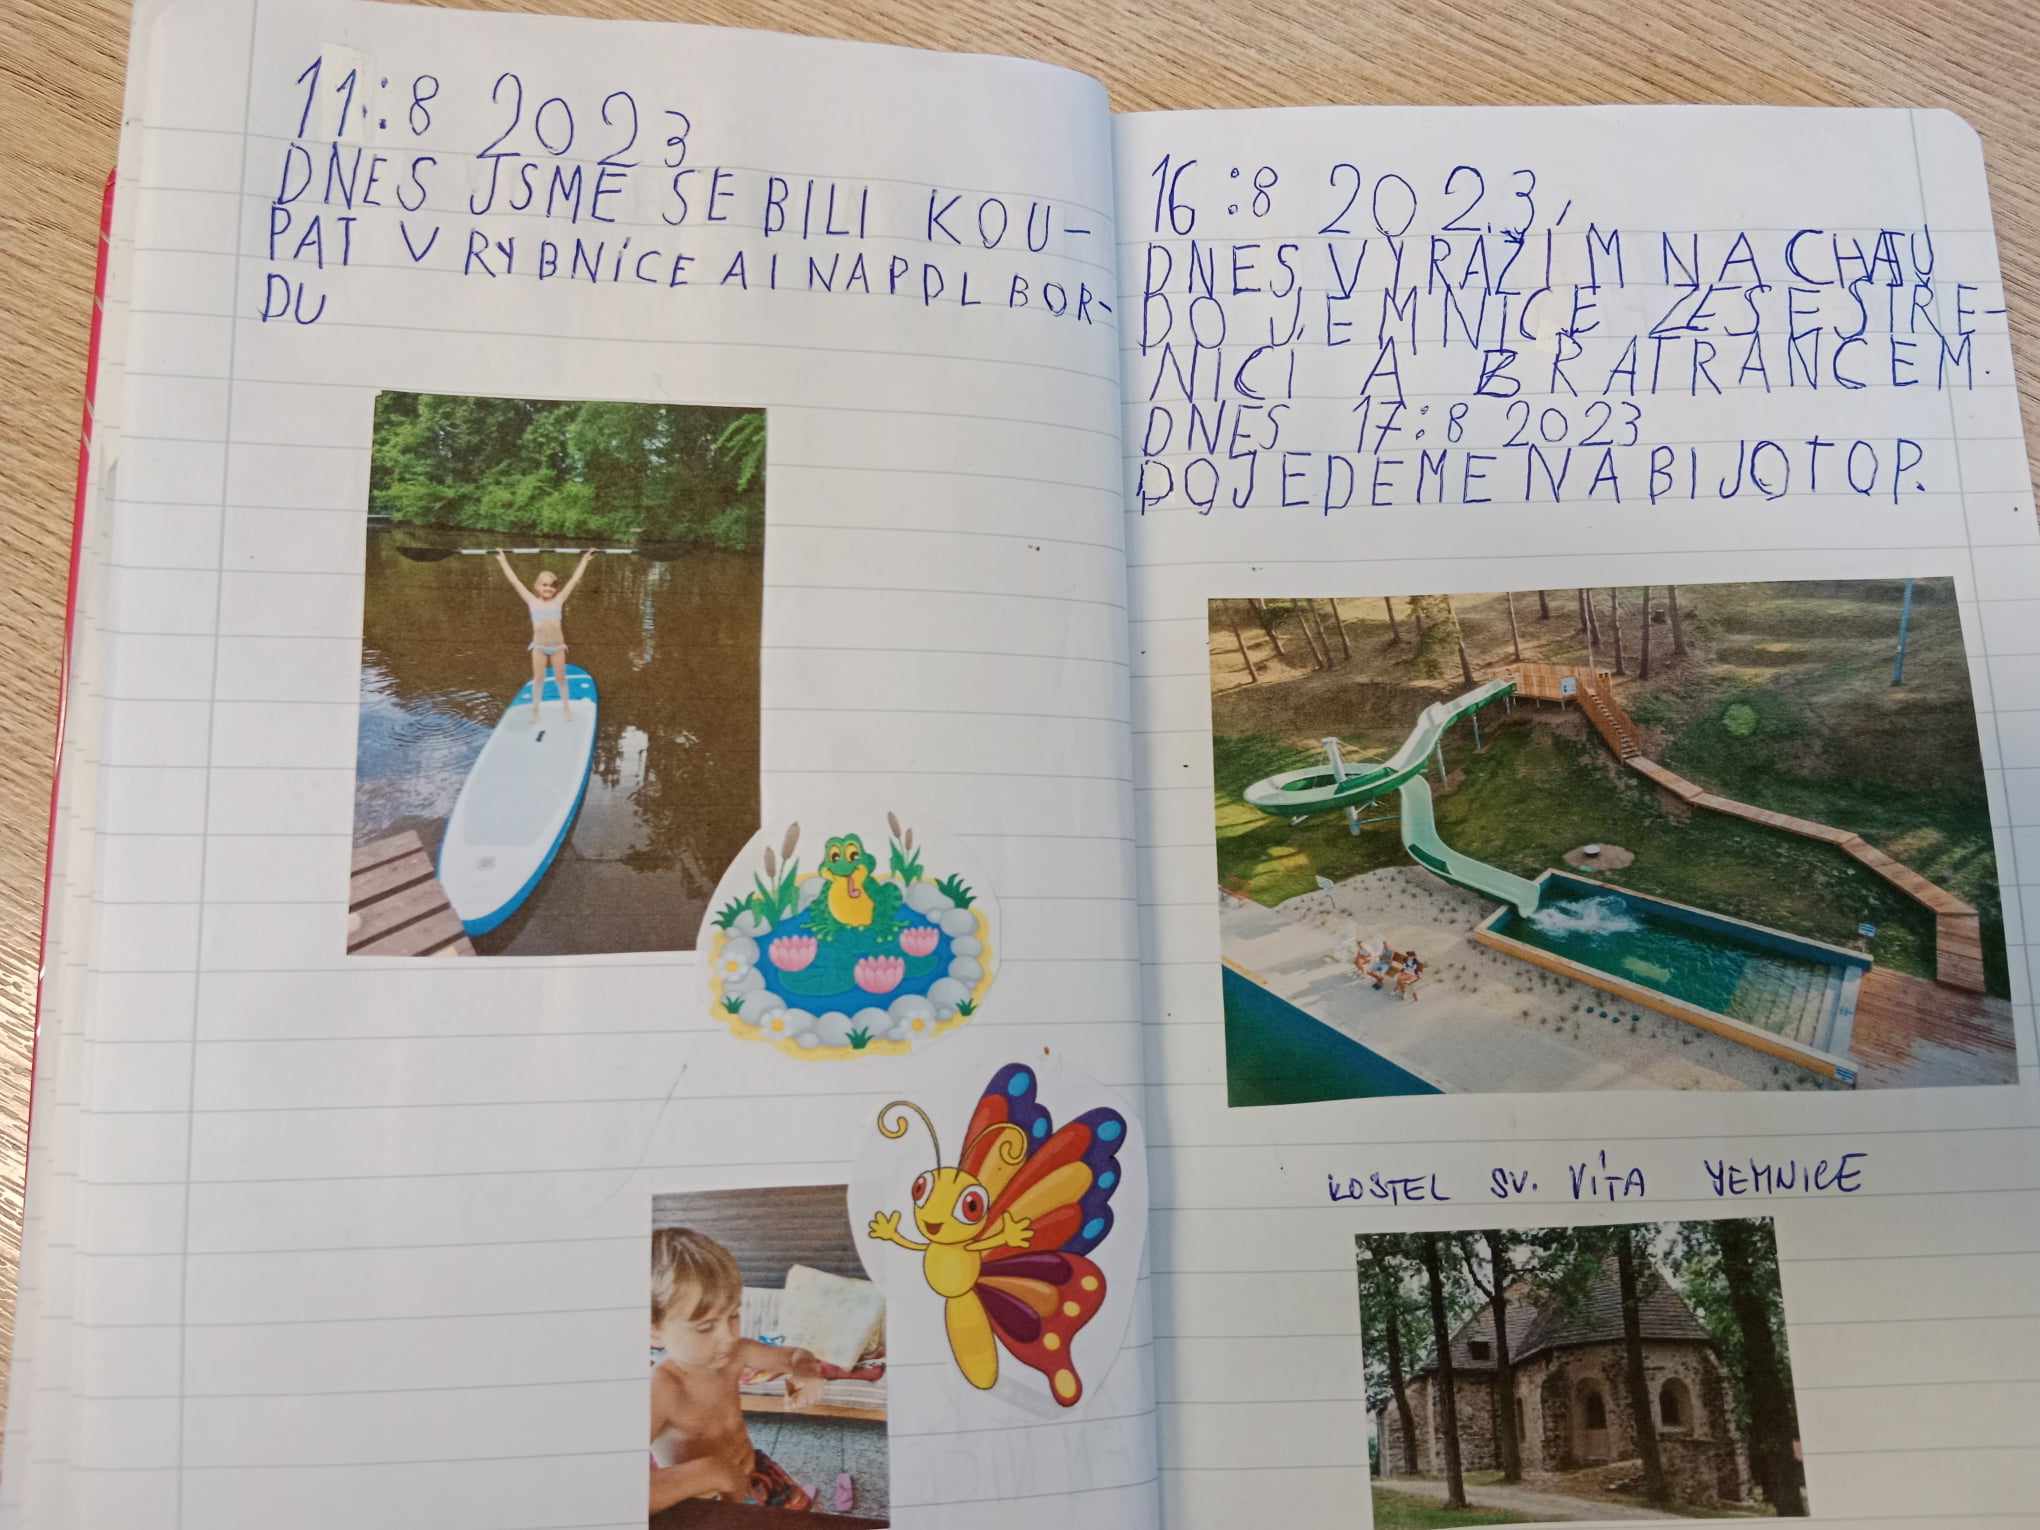 11.:8 2023
DNES JSME SE BILI KOU-
PAT V RYBNÍCE A I NA PDL BOR-
DU
16:8 2023,
DNES VYRAŽÍM NA CHATU
DO JEMNICE ZE SESTŘE-
NICÍ A BRATRANCEM.
DNES 17:8 2023
POJEDEME NA BIJOTOP.
KOSTEL SV. VÍTA JEMNICE